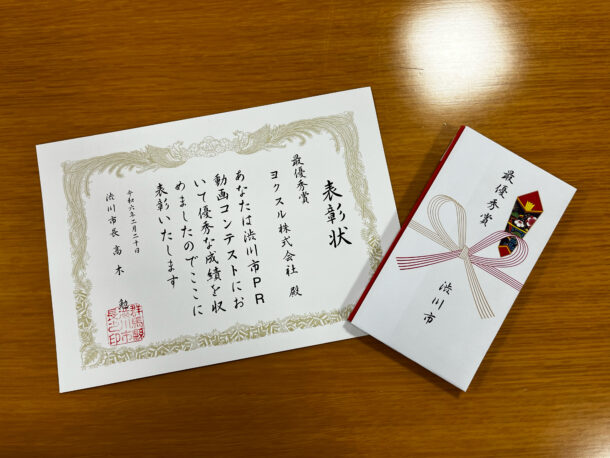 表彰状
最優秀賞
ヨクスル株式会社 殿
あなたは渋川市PR
動画コンテストにお
いて優秀な成績を収
めましたのでここに
表彰いたします
令和六年二月二十日
渋川市長 高木 勉
群馬県
渋川市
長之印
最優秀賞
渋川市